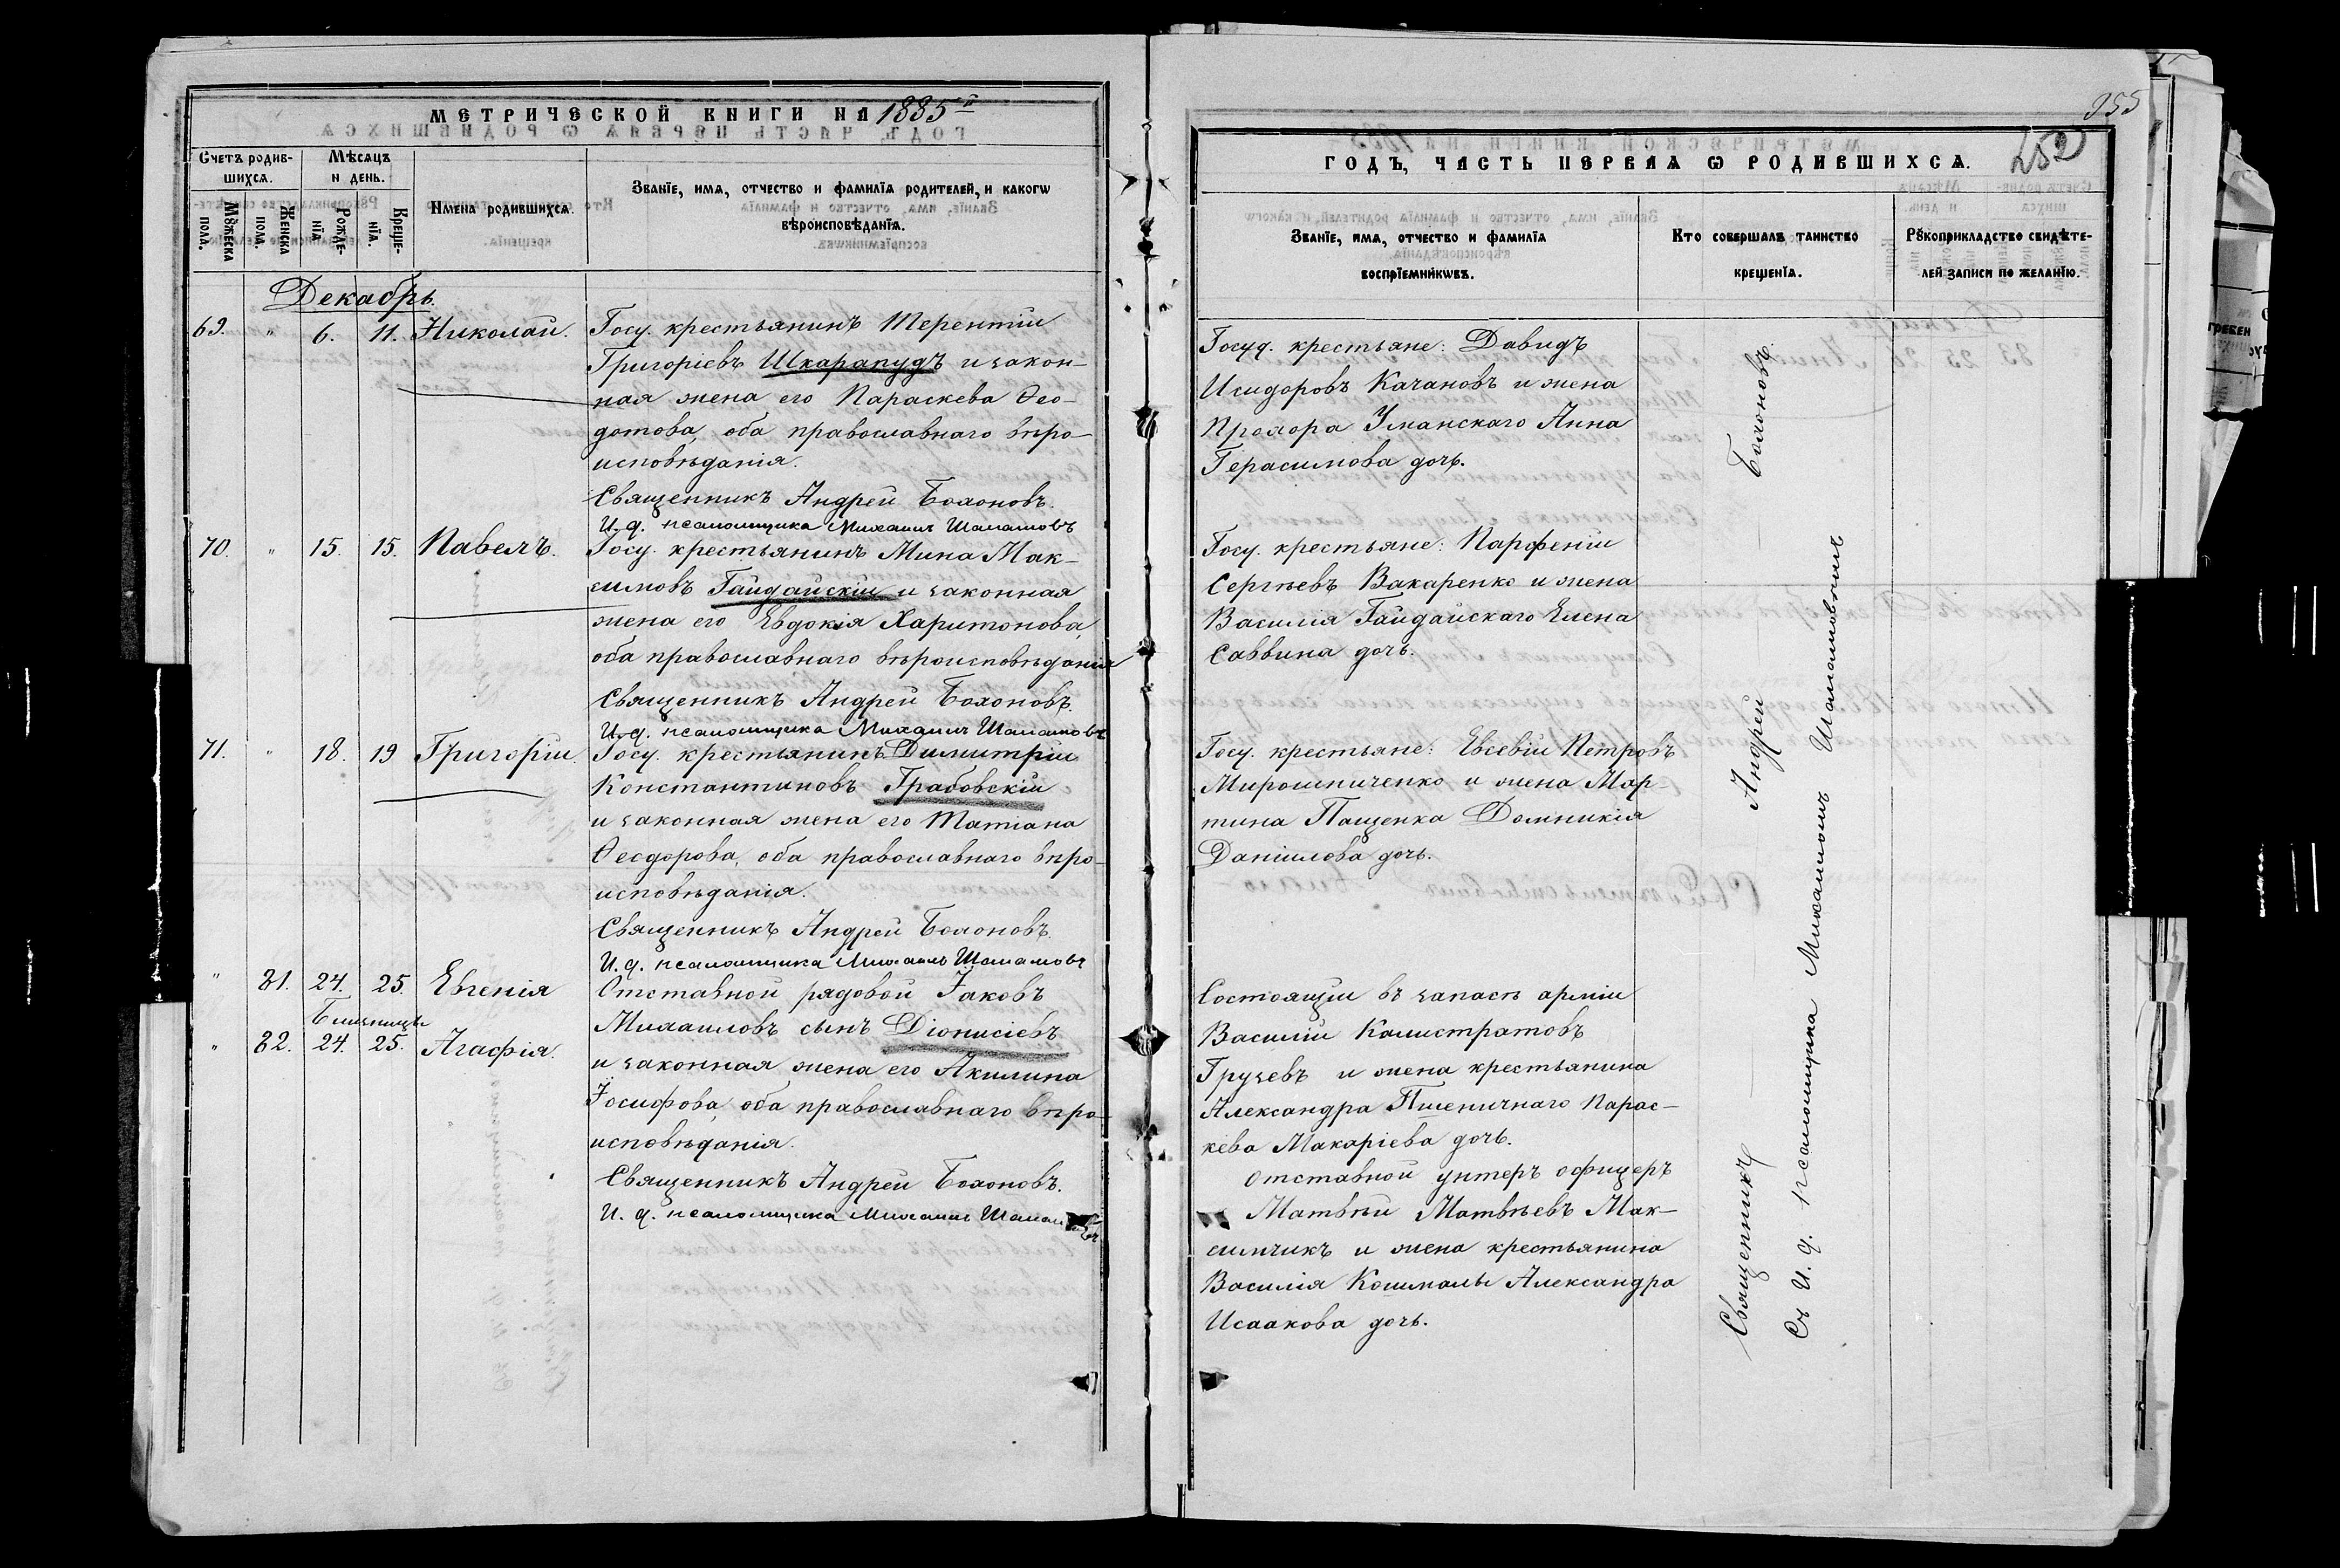 МЕТРИЧЕСКОЙ КНИГИ НА 1885й
Счетъ родив-
шихся.
Мѣсяцъ
и день.
Мꙋжеска
пола.
Женска
пола.
Рожде-
нїя
Креще-
нїя.
Имена родившихся.
Званїе, имя, отчество и фамилїя родителей, и какогѡ
вѣроисповѣданїя.
Декабрь.
69. " 6. 11. Николай.
Госу. крестьянинъ Терентій
Григоріевъ Шкарапудъ и закон-
ная жена его Параскева Ѳео-
дотова, оба православнаго вѣро-
исповѣданія.
Священникъ Андрей Бохоновъ.
И. д. псаломщика Михаилъ Шаламовъ
70. " 15. 15. Павелъ.
Госу. крестьянинъ Мина Мак-
симовъ Гайдайскій и законная
жена его Евдокія Харитонова,
оба православнаго вѣроисповѣданія
Священникъ Андрей Бохоновъ.
И. д. псаломщика Михаилъ Шаламовъ
71. " 18. 19 Григорій.
Госу. крестьянинъ Димитрій
Константиновъ Грабовскій
и законная жена его Татіана
Ѳеодорова, оба православнаго вѣро-
исповѣданія.
Священникъ Андрей Бохоновъ.
И. д. псаломщика Михаилъ Шаламовъ
" 81. 24. 25. Евгенія
Близницы
" 82. 24. 25. Агафія.
Отставной рядовой Іаковъ
Михаиловъ сынъ Діонисіевъ
и законная жена его Акилина
Іосифова, оба православнаго вѣро-
исповѣданія.
Священникъ Андрей Бохоновъ.
И. д. псаломщика Михаилъ Шаламовъ
355
252
ГОДЪ, ЧАСТЬ ПЕРВАЯ Ѡ РОДИВШИХСЯ.
Званїе, имя, отчество и фамилїя
воспрїемникѡвъ.
Кто совершалъ таинство
крещенїя.
Рꙋкоприкладство свидѣте-
лей записи по желанїю.
Госуд. крестьяне: Давидъ
Исидоровъ Качановъ и жена
Прохора Уманскаго Анна
Герасимова дочь.
Госу. крестьяне: Парфеній
Сергѣевъ Вакаренко и жена
Василія Гайдайскаго Елена
Саввина дочь.
Госу. крестьяне: Евсевій Петровъ
Мирошниченко и жена Мар-
тина Пащенка Домникія
Даніилова дочь.
Состоящій въ запасѣ арміи
Василій Калистратовъ
Грузевъ и жена крестьянина
Александра Пшеничнаго Парас-
кева Макаріева дочь.
Отставной унтеръ офицеръ
Матвѣй Матвѣевъ Мак-
симчикъ и жена крестьянина
Василія Кошмалы Александра
Исаакова дочь.
Священникъ Андрей Бохоновъ.
Съ И. д. псаломщика Михаиломъ Шаламовымъ